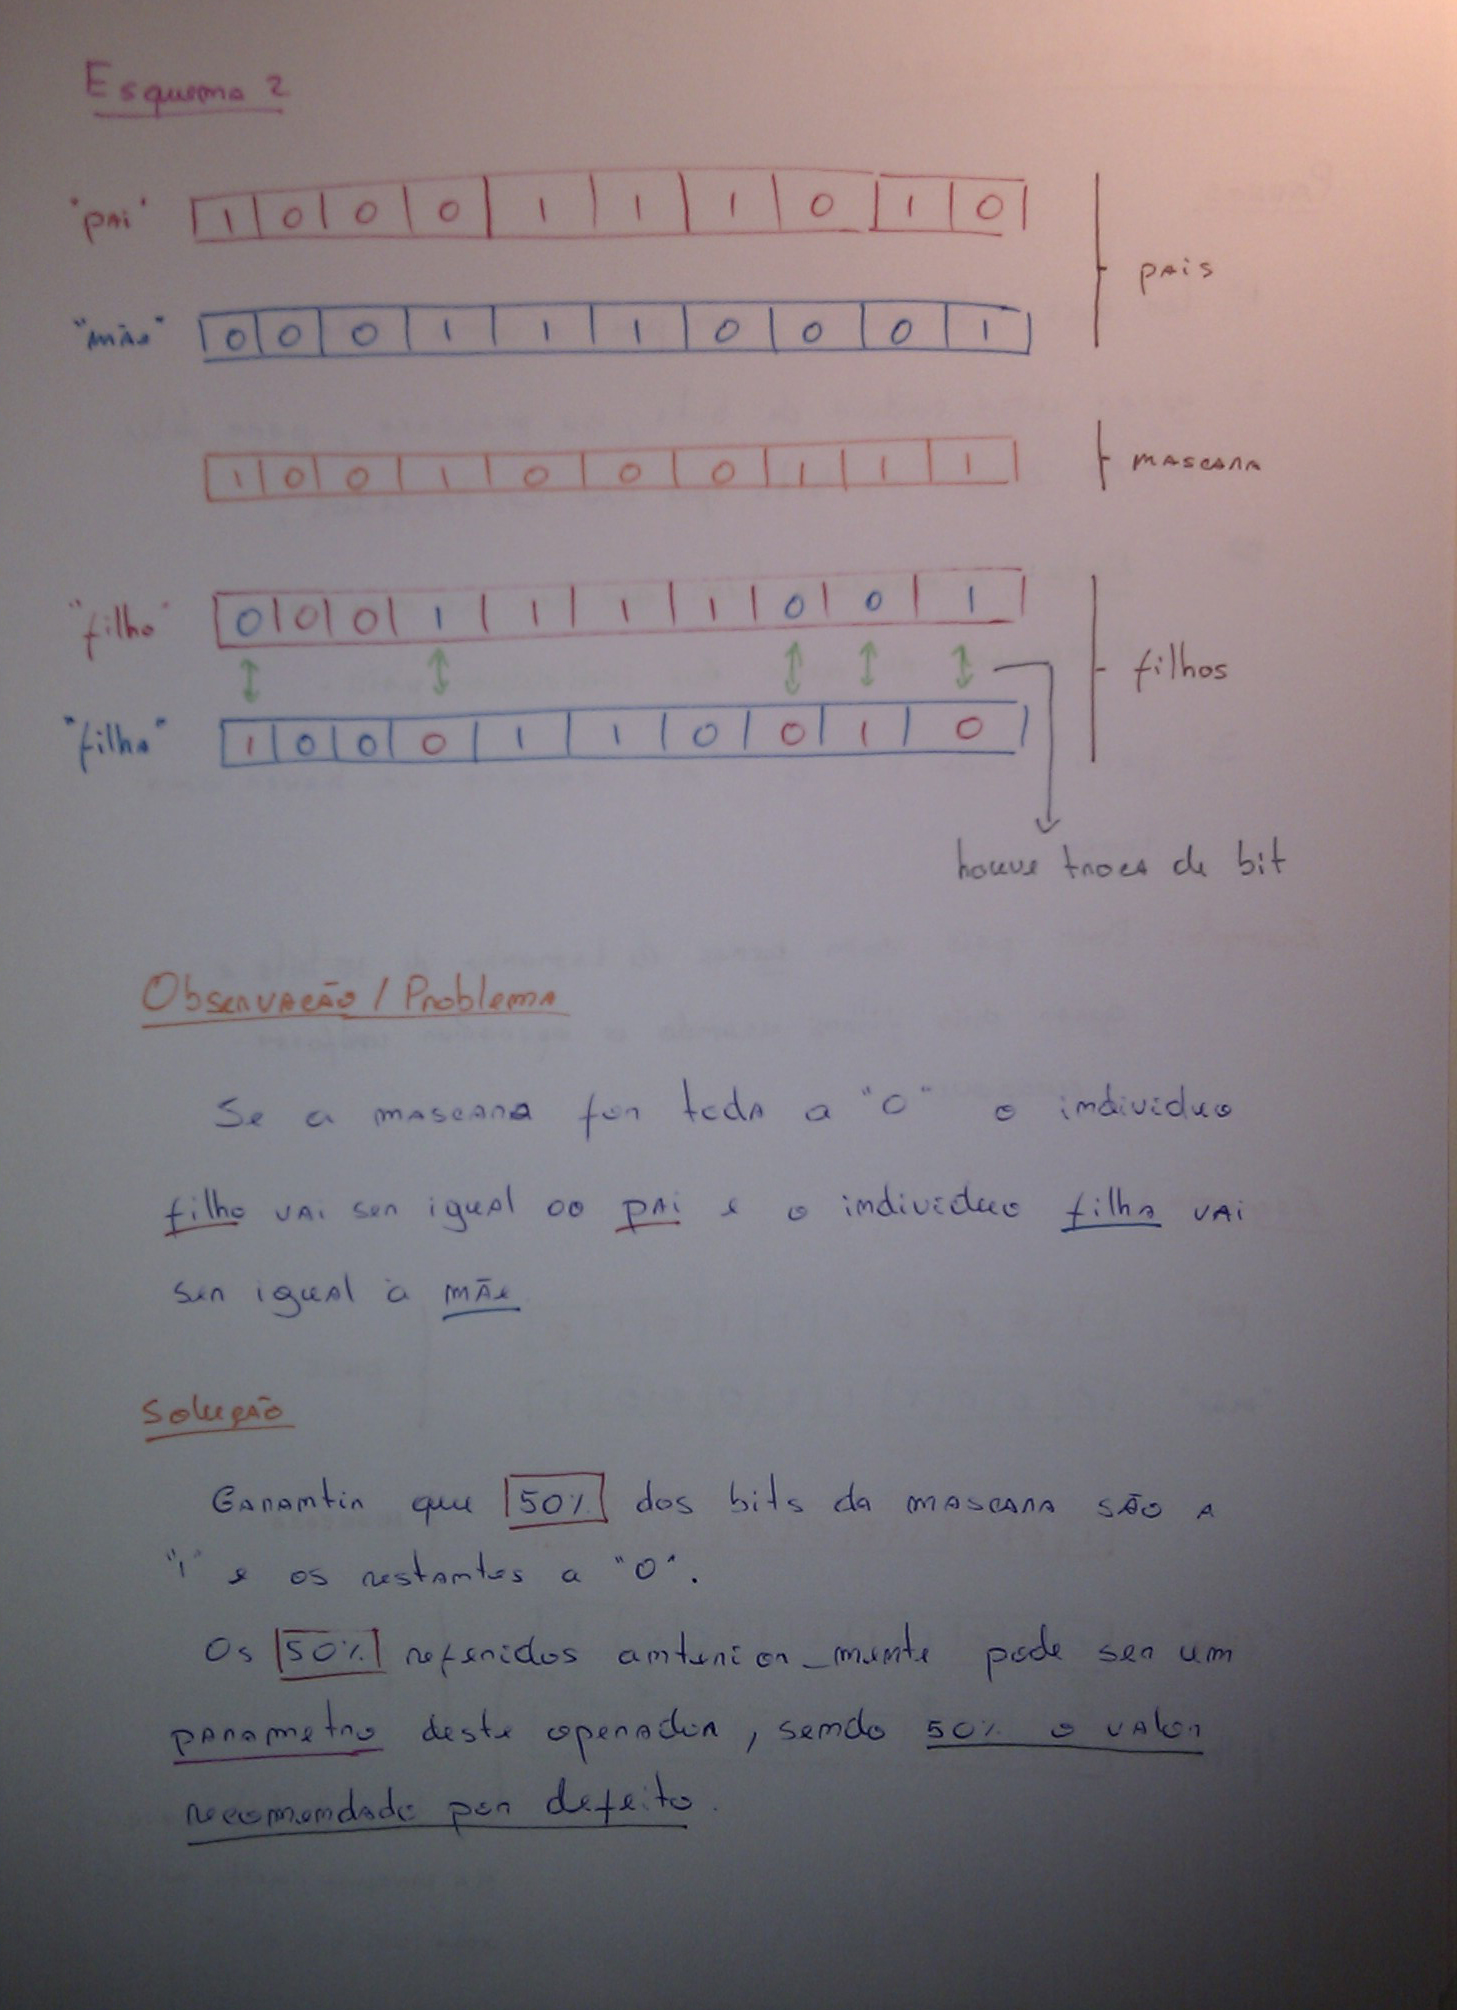 Esquema 2
"pai" 1 0 0 0 1 1 1 0 1 0
pais
"mãe" 0 0 0 1 1 1 0 0 0 1
1 0 0 1 0 0 0 1 1 1 mascara
"filho" 0 0 0 1 1 1 1 0 0 1
filhos
"filha" 1 0 0 0 1 1 0 0 1 0
houve troca de bit
Observação / Problema
Se a mascara for toda a "0" o individuo
filho vai ser igual ao pai e o individuo filha vai
ser igual à mãe
Solução
Garantir que 50% dos bits da mascara são a
"1" e os restantes a "0".
Os 50% referidos anterior_mente pode ser um
parametro deste operador, sendo 50% o valor
recomendado por defeito.